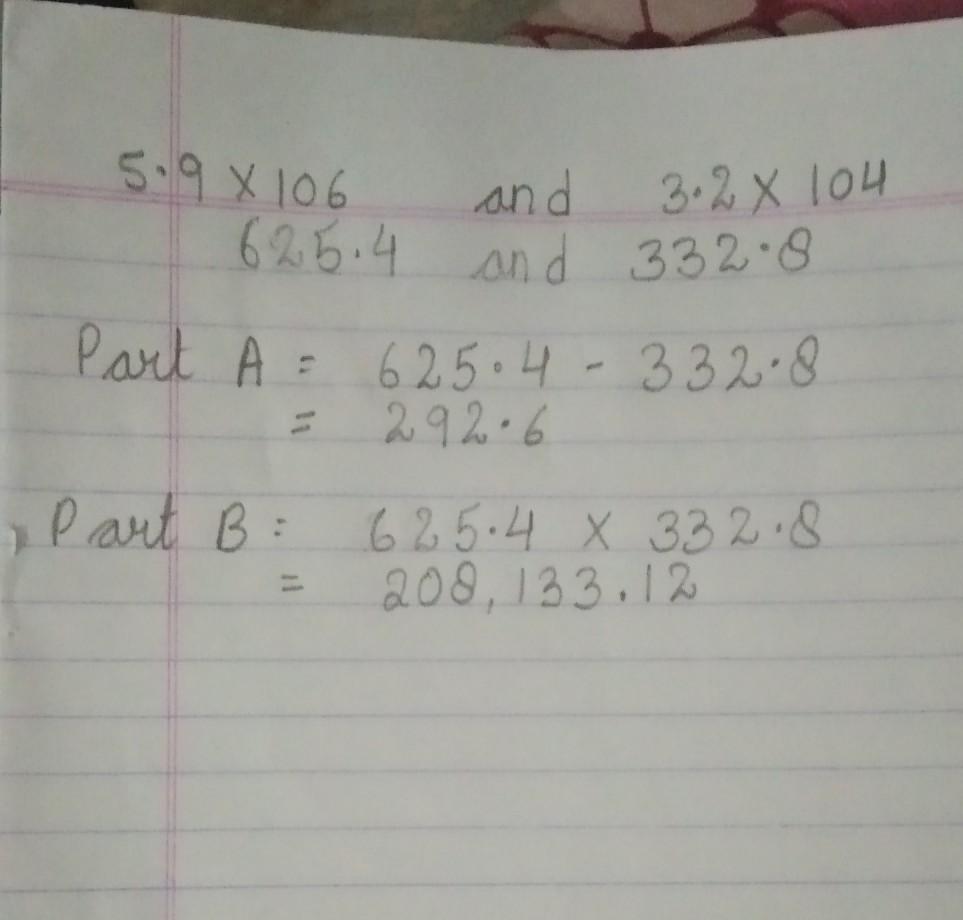 5.9 x 106 and 3.2 x 104
625.4 and 332.8
Part A = 625.4 - 332.8
= 292.6
Part B = 625.4 x 332.8
= 208,133.12